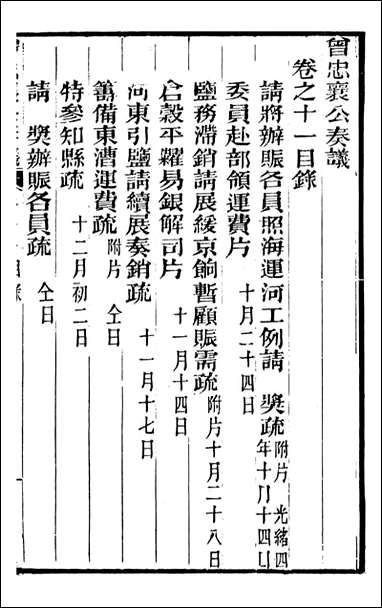 曾忠襄公奏議
卷之十一目錄
請將辦賑各員照海運河工例請 獎疏 附片 光緒四年十月十四日
委員赴部領運費片 十月二十四日
鹽務滯銷請展緩京餉暫顧賑需疏 附片十月二十八日
倉穀平糶易銀解司片 十一月十四日
河東引鹽請續展奏銷疏 十一月十七日
籌備東漕運費疏 附片 仝日
特參知縣疏 十二月初二日
請 獎辦賑各員疏 仝日